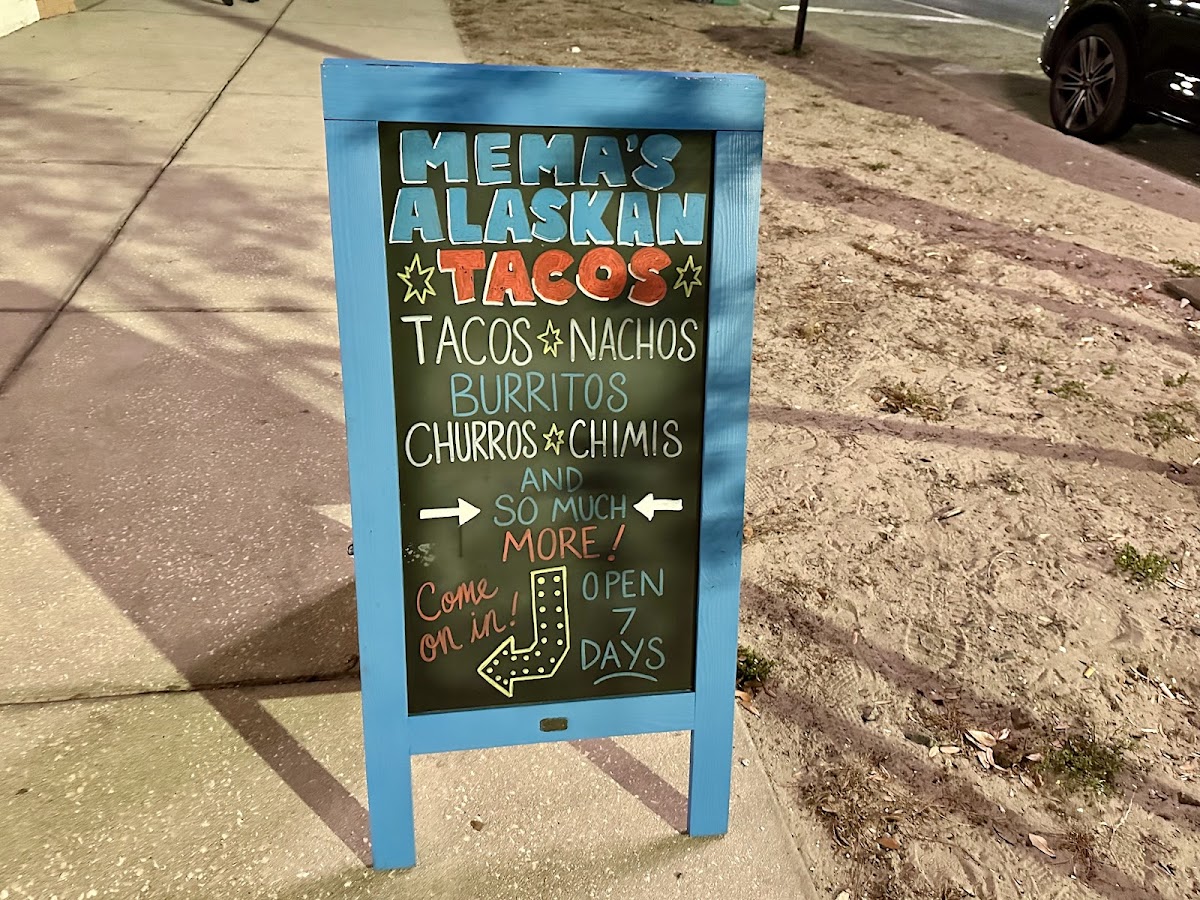 MEMA'S
ALASKAN
TACOS
TACOS NACHOS
BURRITOS
CHURROS CHIMIS
AND
SO MUCH
MORE!
Come
on in!
OPEN
7
DAYS